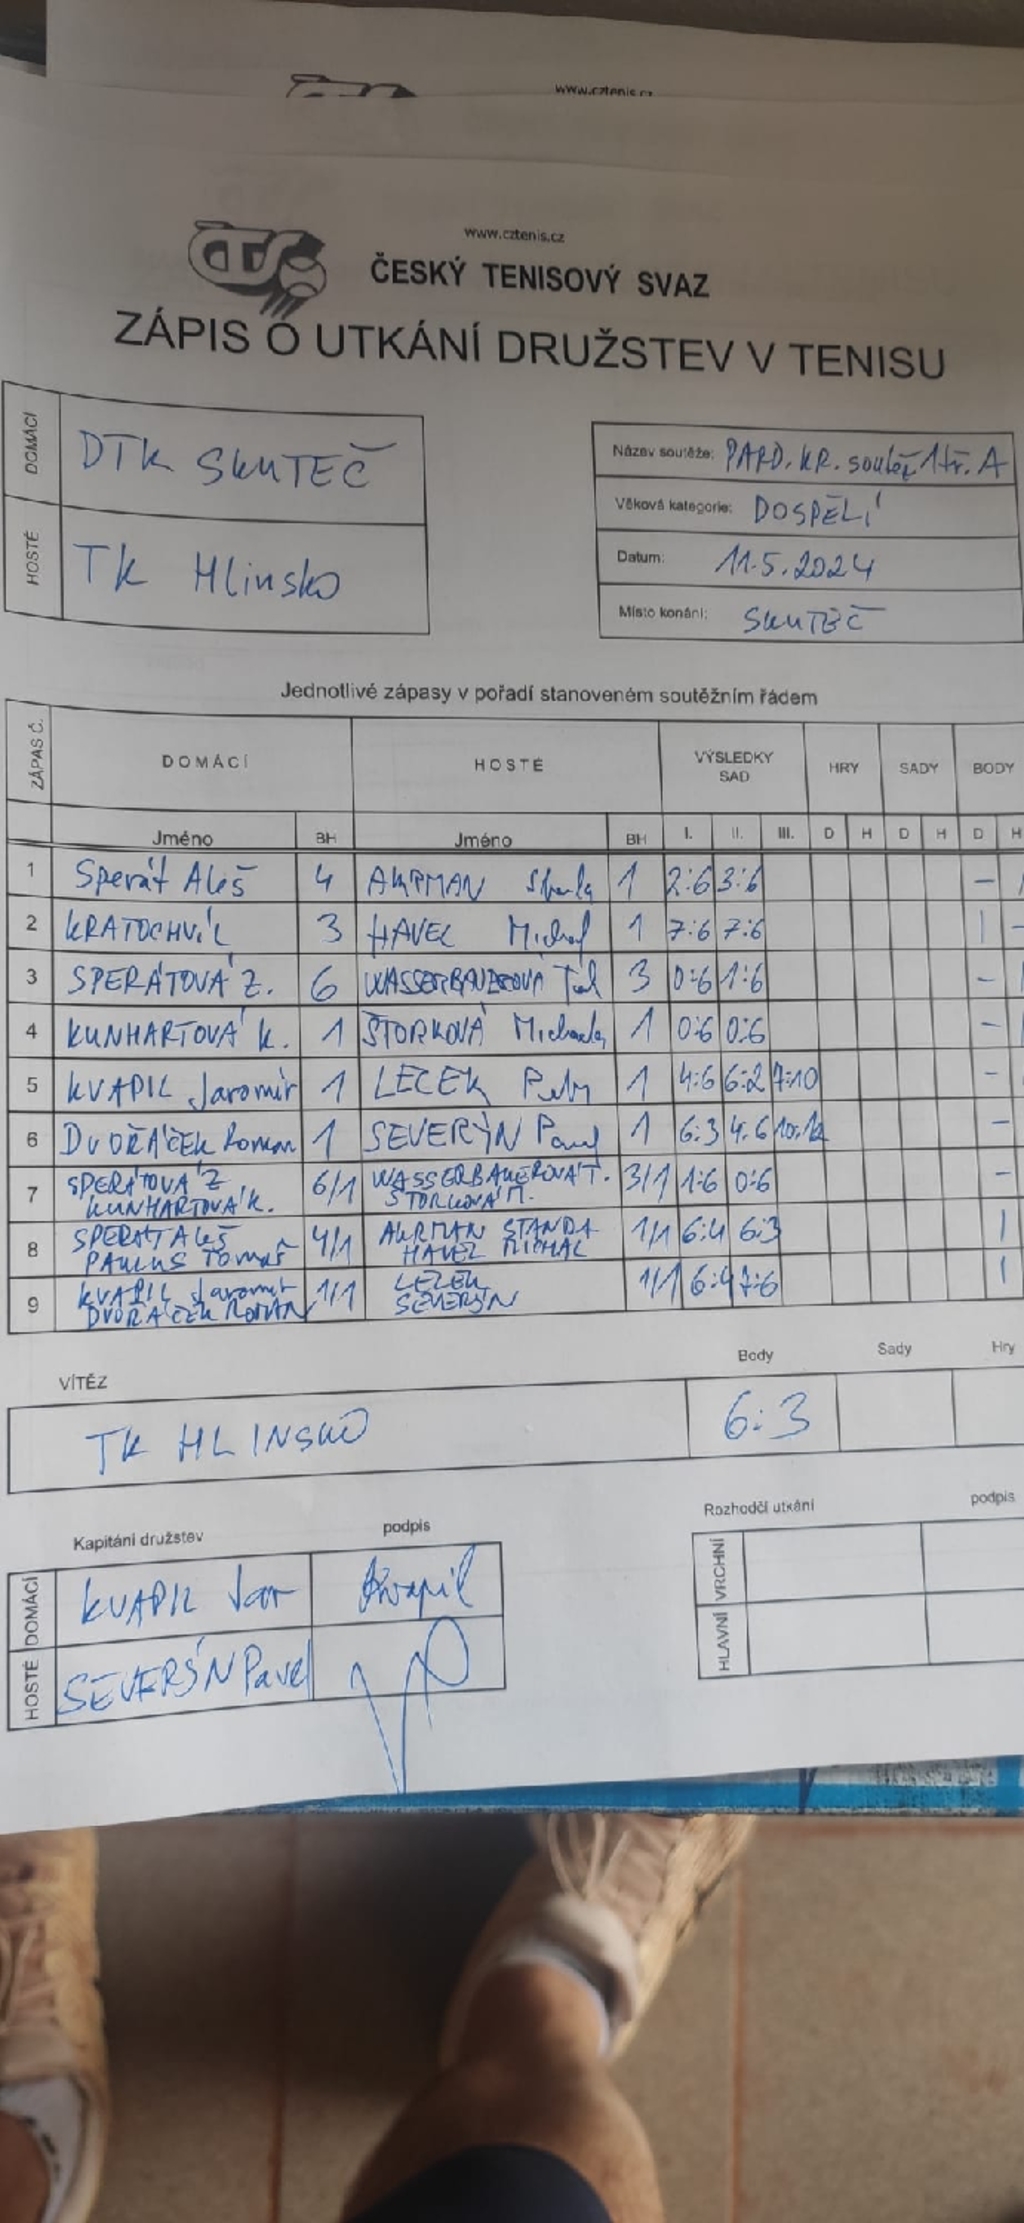 www.cztenis.cz
www.cztenis.cz
ČESKÝ TENISOVÝ SVAZ
ZÁPIS O UTKÁNÍ DRUŽSTEV V TENISU
DOMÁCÍ DTK SKUTEČ
HOSTÉ TK Hlinsko
Název soutěže: PARD. KR. soutěž 1tř. A
Věková kategorie: DOSPĚLÍ
Datum: 11.5.2024
Místo konání: SKUTEČ
Jednotlivé zápasy v pořadí stanoveném soutěžním řádem
ZÁPAS Č. DOMÁCÍ HOSTÉ VÝSLEDKY SAD HRY SADY BODY
Jméno BH Jméno BH I. II. III. D H D H D H
1 Sperát Aleš 4 AKRMAN 1 2:6 3:6 –
2 KRATOCHVÍL 3 HAVEL Michal 1 7:6 7:6 | –
3 SPERÁTOVÁ Z. 6 3 0:6 1:6 –
4 KUNHARTOVÁ K. 1 ŠTORKOVÁ Michaela 1 0:6 0:6 –
5 KVAPIL Jaromír 1 LECEK Petr 1 4:6 6:2 7:10 –
6 DVOŘÁČEK Roman 1 SEVERÝN Pavel 1 6:3 4:6 10:12 –
7 SPERÁTOVÁ Z 6/1 WASSERBAUEROVÁ T. 3/1 1:6 0:6 –
KUNHARTOVÁ K. ŠTORKOVÁ M.
8 SPERÁT Aleš 4/1 AKRMAN STANDA 1/1 6:4 6:3 |
PAULUS Tomáš HAVEL MICHAL
9 KVAPIL Jaromír 1/1 LECEK 1/1 6:4 7:6 |
DVOŘÁČEK ROMAN SEVERÝN
VÍTĚZ Body Sady Hry
TK HLINSKO 6:3
Kapitáni družstev podpis Rozhodčí utkání podpis
DOMÁCÍ KVAPIL Jar Kvapil VRCHNÍ
HOSTÉ SEVERÝN Pavel HLAVNÍ